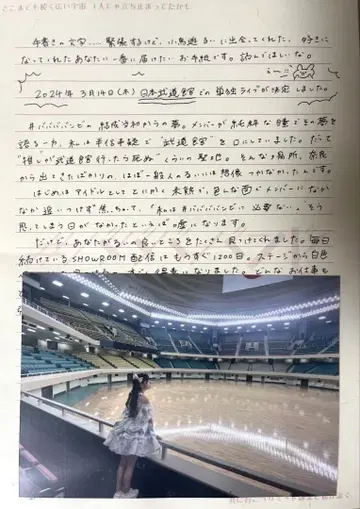 どこまでも続く広い宇宙 1人じゃ立ち止まってたかも
手書きの文字……緊張するけど、小鳥遊るいに出会ってくれた、好きに
なってくれたあなたに一番に届けたいお手紙です。読んでほしいな。
2024年3月14日(木)日本武道館での単独ライブが決定しました。
#ババババンビの結成当初からの夢。メンバーが純粋な瞳でその夢を
語る一方、私は半信半疑で"武道館"を口にしていました。だって
"推しが武道館行ったら死ぬ"くらいの聖地。そんな場所、奈良
から出てきたばかりの、ほぼ一般人のるいには想像つかなかったんです。
はじめはアイドルとしてとにかく未熟で、色んな面でメンバーになか
なか追いつけず焦っちゃって、「私は#ババババンビに必要ない。」そう
思ってしまう日がなかったといえば嘘になります。
だけど、あなたがるいの良いところをたくさん見つけてくれました。毎日
続けているSHOWROOM配信はもうすぐ1200日。ステージから自慢